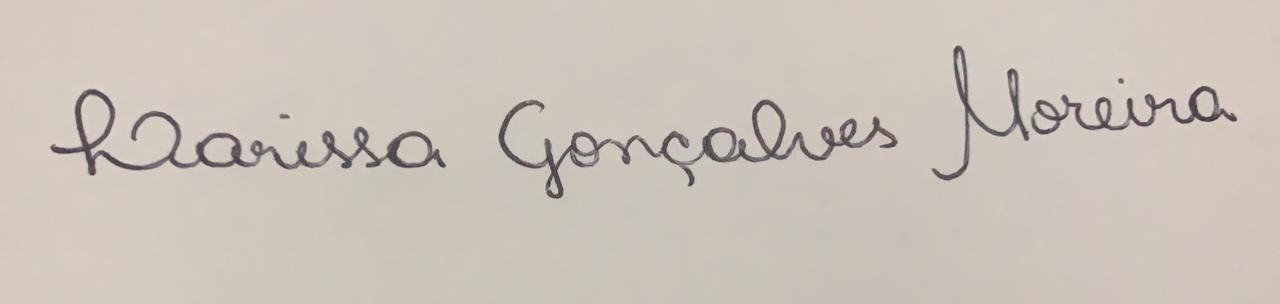 Larissa Gonçalves Moreira